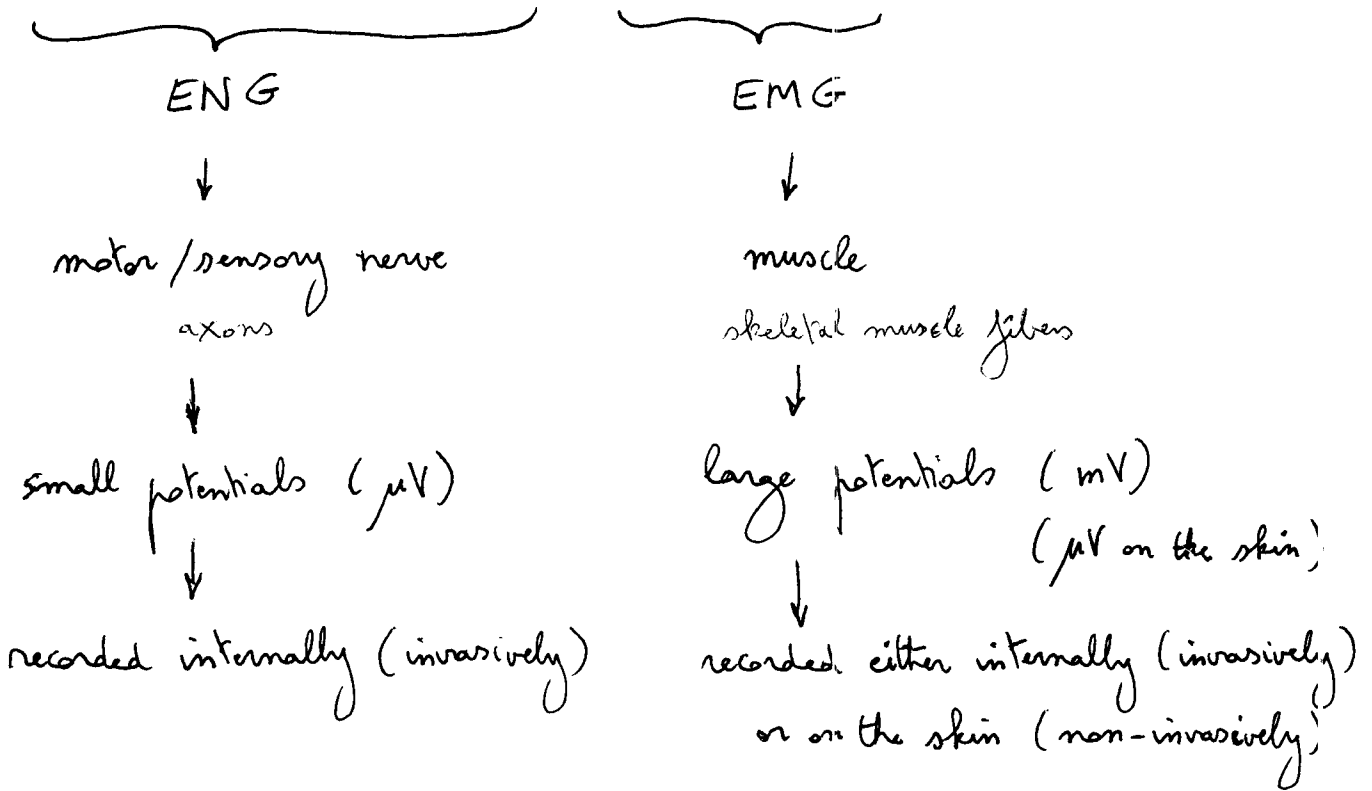 ENG
↓
motor / sensory nerve
axons
↓
small potentials (μV)
↓
recorded internally (invasively)
EMG
↓
muscle
skeletal muscle fibers
↓
large potentials (mV)
(μV on the skin)
↓
recorded either internally (invasively)
or on the skin (non-invasively)